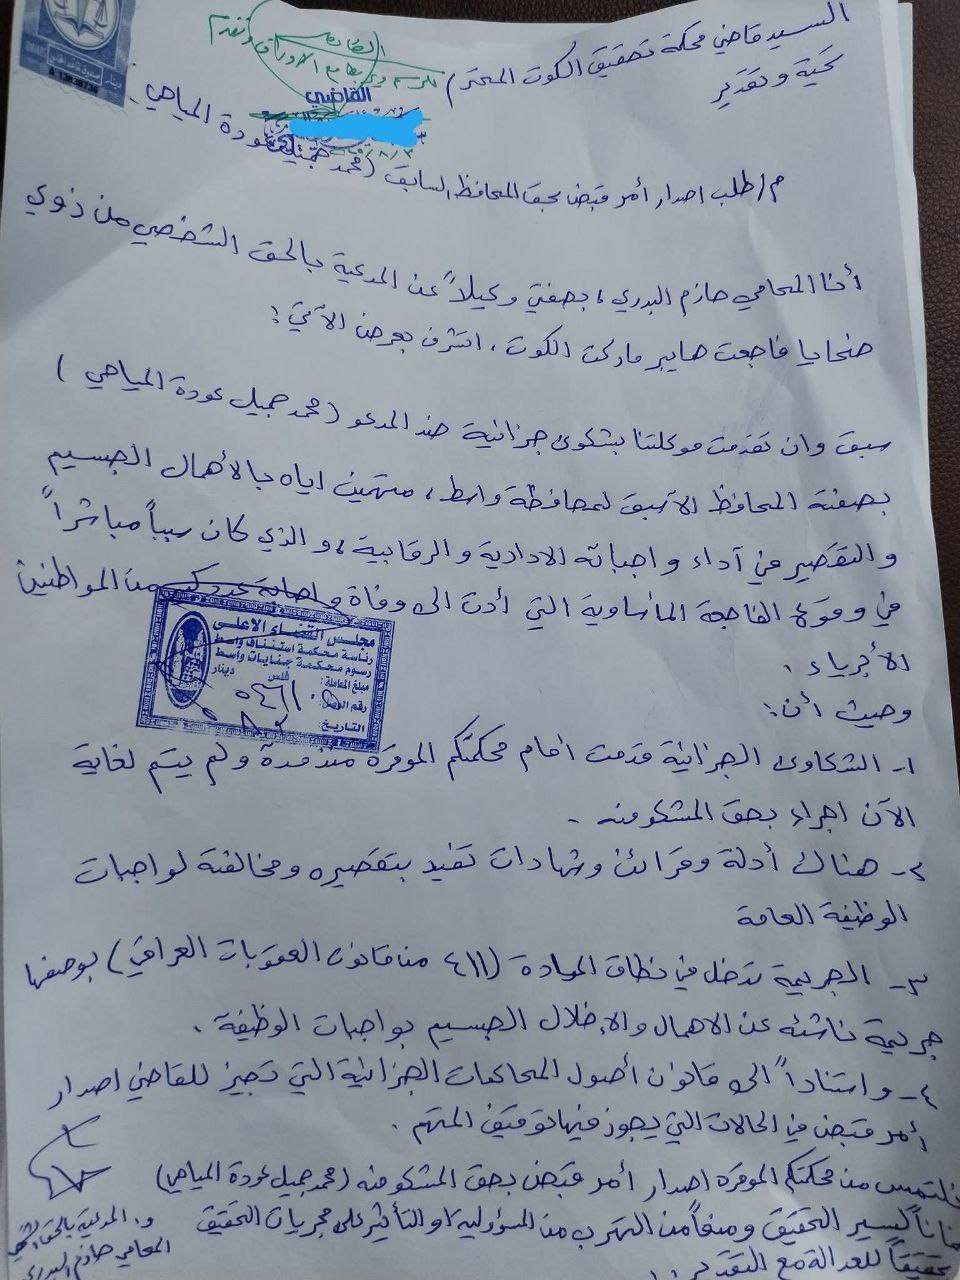 السيد قاضي محكمة تحقيق الكوت المحترم /
تحية وتقدير
القاضي
م/ طلب اصدار أمر قبض بحق المحافظ السابق (محمد جميل عودة المياحي)
أنا المحامي حازم البدري، بصفتي وكيلاً عن المدعية بالحق الشخصي من ذوي
ضحايا فاجعت هايبر ماركت الكوت، اتشرف بعرض الآتي:
سبق وان تقدمت موكلتنا بشكوى جزائية ضد المدعو (محمد جميل عودة المياحي)
بصفته المحافظ الاسبق لمحافظة واسط، متهمين اياه بالأهمال الجسيم
والتقصير في آداء واجباته الادارية والرقابية، والذي كان سبباً مباشراً
في وقوع الفاجعة المأساوية التي أدت الى وفاة واصابة عدد كبير من المواطنين
الأبرياء.
مجلس القضاء الاعلى
رئاسة محكمة استئناف واسط
رسوم محكمة جنايات واسط
فلس دينار
مبلغ المعاملة:
رقم الوصل:
التاريخ:
وحيث أن:
١- الشكاوى الجزائية قدمت امام محكمتكم الموقرة منذ مدة ولم يتم لغاية
الآن اجراء بحق المشكو منه.
٢- هناك أدلة وقرائن وشهادات تفيد بتقصيره ومخالفته لواجبات
الوظيفة العامة
٣- الجريمة تدخل في نطاق المادة (٤١١ من قانون العقوبات العراقي) بوصفها
جريمة ناشئه عن الاهمال والاخلال الجسيم بواجبات الوظيفة.
٤- واستناداً الى قانون أصول المحاكمات الجزائية التي تجيز للقاضي اصدار
أمر قبض في الحالات التي يجوز فيها توقيف المتهم.
نلتمس من محكمتكم الموقرة اصدار أمر قبض بحق المشكو منه (محمد جميل عودة المياحي)
ضماناً لسير التحقيق ومنعاً من التهرب من المسؤولية او التأثير على مجريات التحقيق
تحقيقاً للعدالة مع التقدير
و. المدعية بالحق الشخصي
المحامي حازم البدري